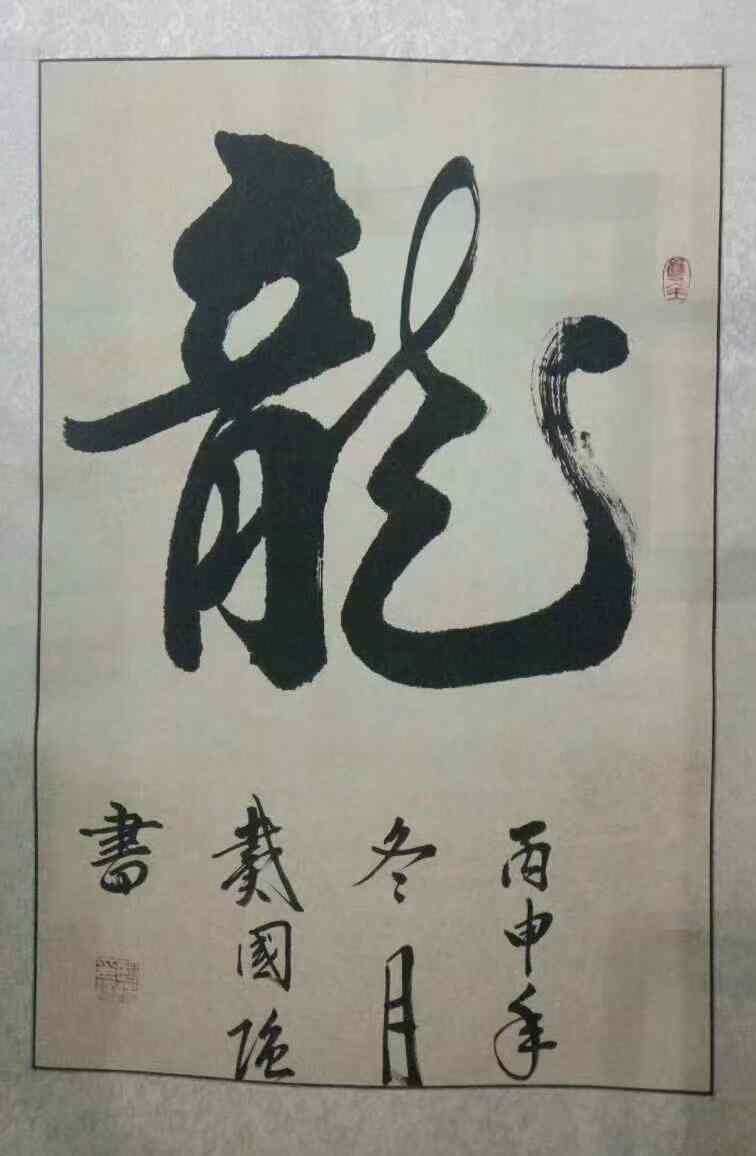 龍
丙申年
冬月
戴國强
書